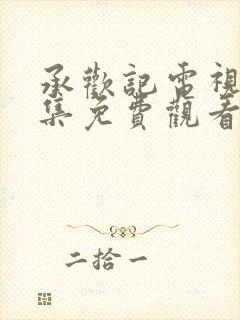 承歡記電視
集免費觀看
二拾一